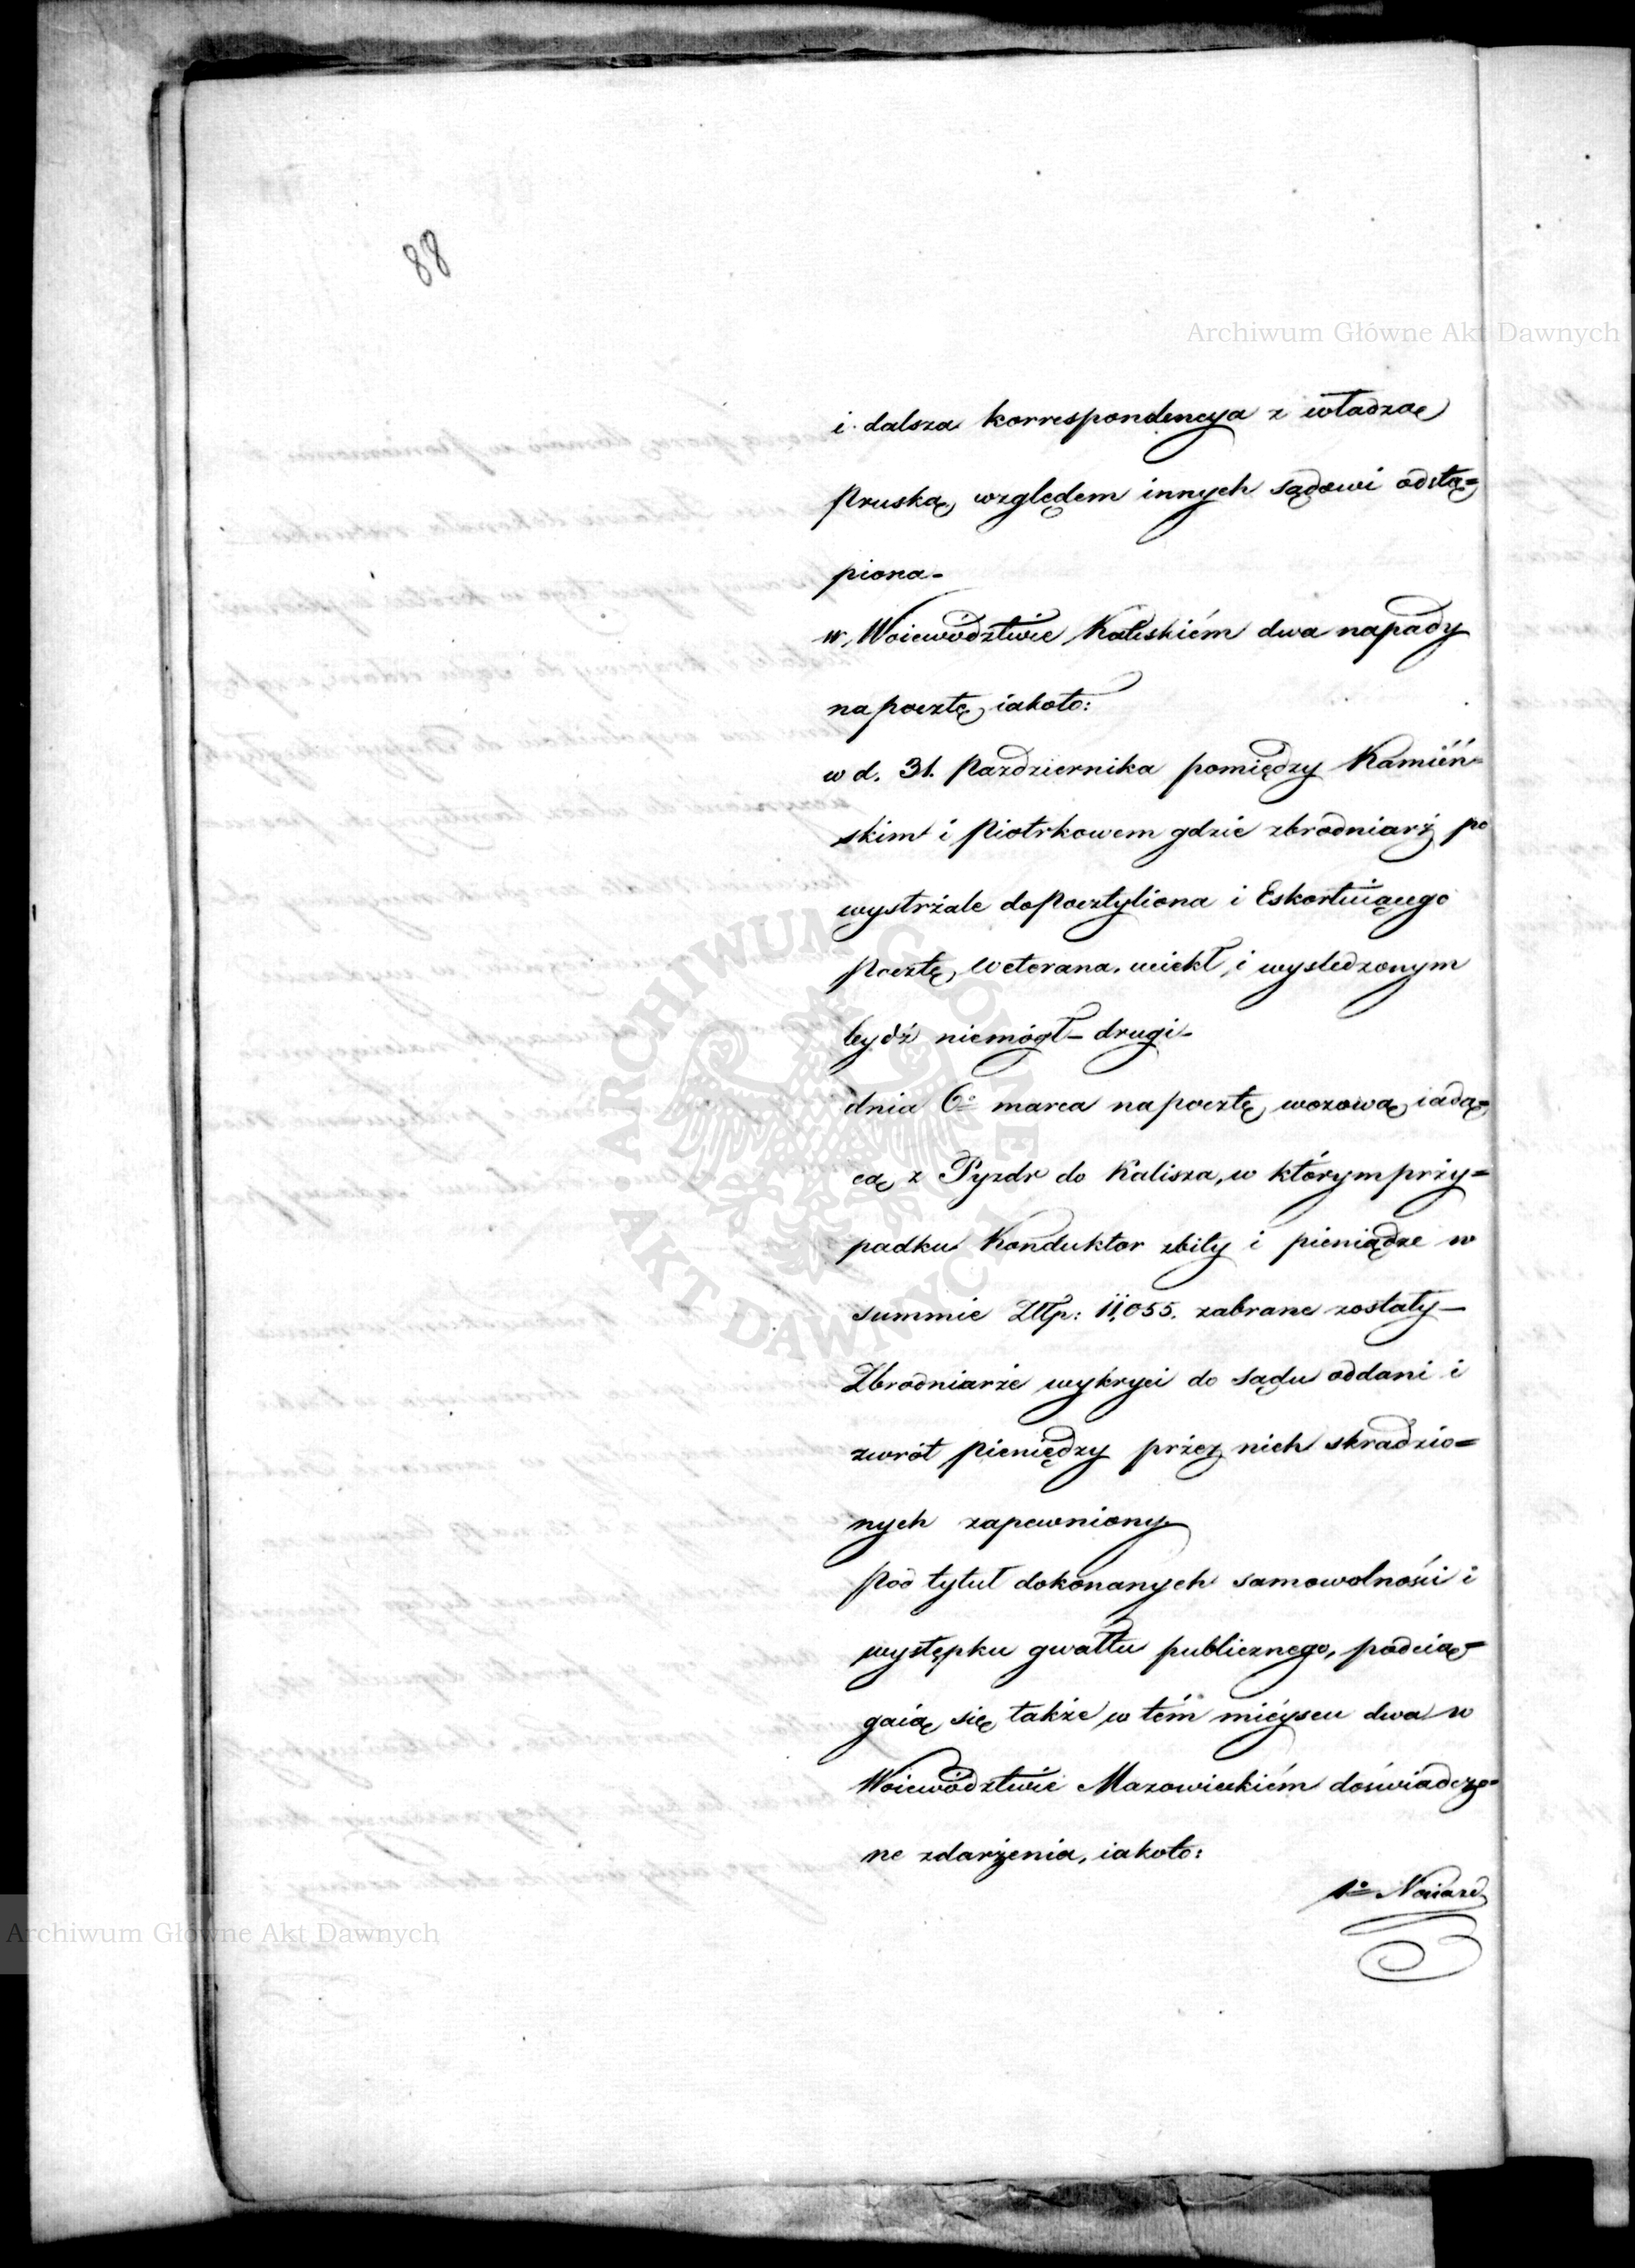 88
Archiwum Główne Akt Dawnych
i dalsza korrespondencya z władzą
Pruską, względem innych sądowi odstą=
piona.
w Woiewództwie Kaliskiém dwa napady
na pocztę, iakoto:
w d. 31. Października pomiędzy Kamień=
skim i Piotrkowem gdzie zbrodniarz po
wystrzale do Pocztyliona i Eskortuiącego
Pocztę, Weterana, uciekł, i wysledzonym
bydź niemógł – drugi
dnia 6° marca na pocztę, wozową, iadą=
cą z Pyzdr do Kalisza, w którym przy=
padku Konduktor zbity i pieniądze w
summie Złp: 11,055. zabrane zostały –
Zbrodniarze wykryci do sądu oddani i
zwrót pieniędzy przez nich skradzio=
nych zapewniony
Pod tytuł dokonanych samowolności i
występku gwałtu publicznego, podcią=
gaią się także w tém mieyscu dwa w
Woiewództwie Mazowieckiém doświadczo=
ne zdarzenia, iakoto:
1°
ARCHIWUM GŁÓWNE
AKT DAWNYCH
Archiwum Główne Akt Dawnych